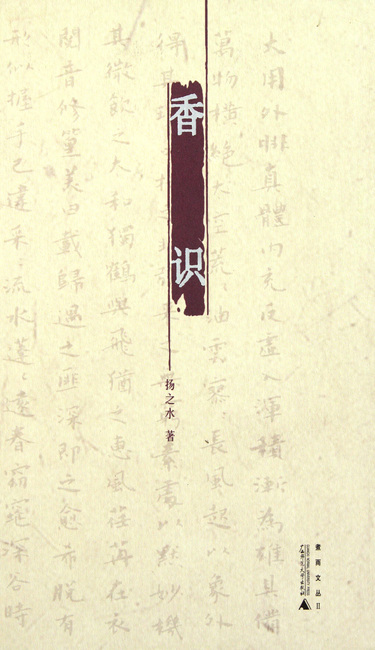 香识
扬之水 著
煮雨文丛 II
广西师范大学出版社
大用外腓真體内充反虛入渾積為雄具備
萬物橫絶大空荒〻油雲寥〻長風超以象外
得其之素處以默妙機
其微飲之太和獨鶴與飛猶之惠風荏苒在衣
閱音修篁美曰載歸遇之匪深即之愈希脫有
形似握手已違采〻流水蓬〻遠春窈窕深谷時